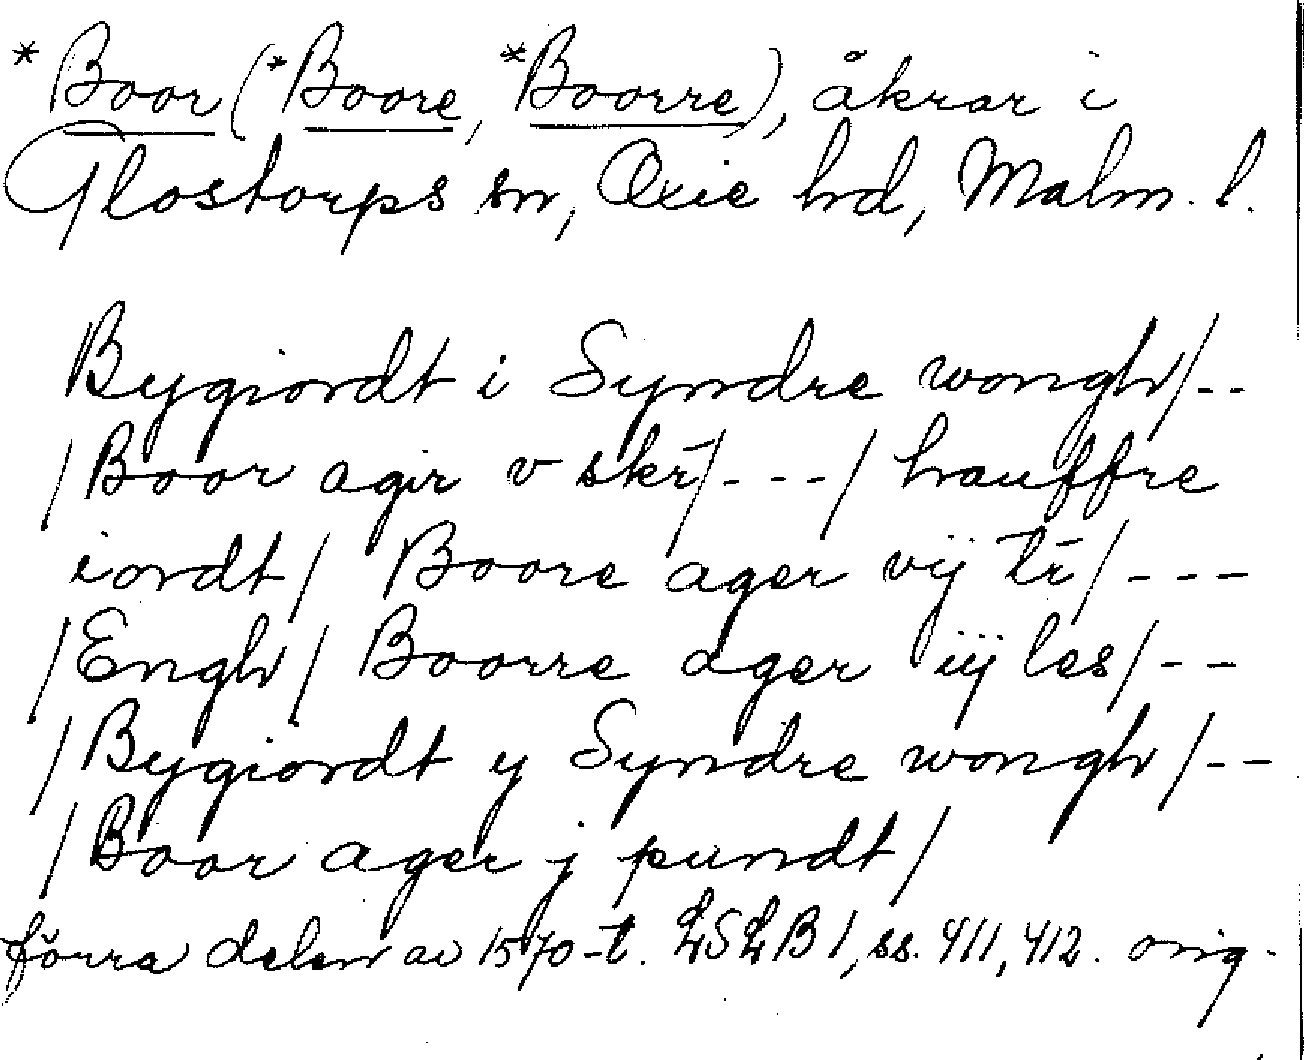 *Boor (*Boore, *Boorre), åkrar i
Glostorps sn, Oxie hd, Malm. l.
Bygiordt i Syndre wongh/--
/Boor agir v skr̄/---/ hauffre
iordt/ Boore ager vij tr̄/---
/Engh/ Boorre ager iij les/--
/Bygiordt y Syndre wongh/--
/Boor ager j pundt/
förra delen av 1570-t. LSLB 1, ss. 411, 412. orig.